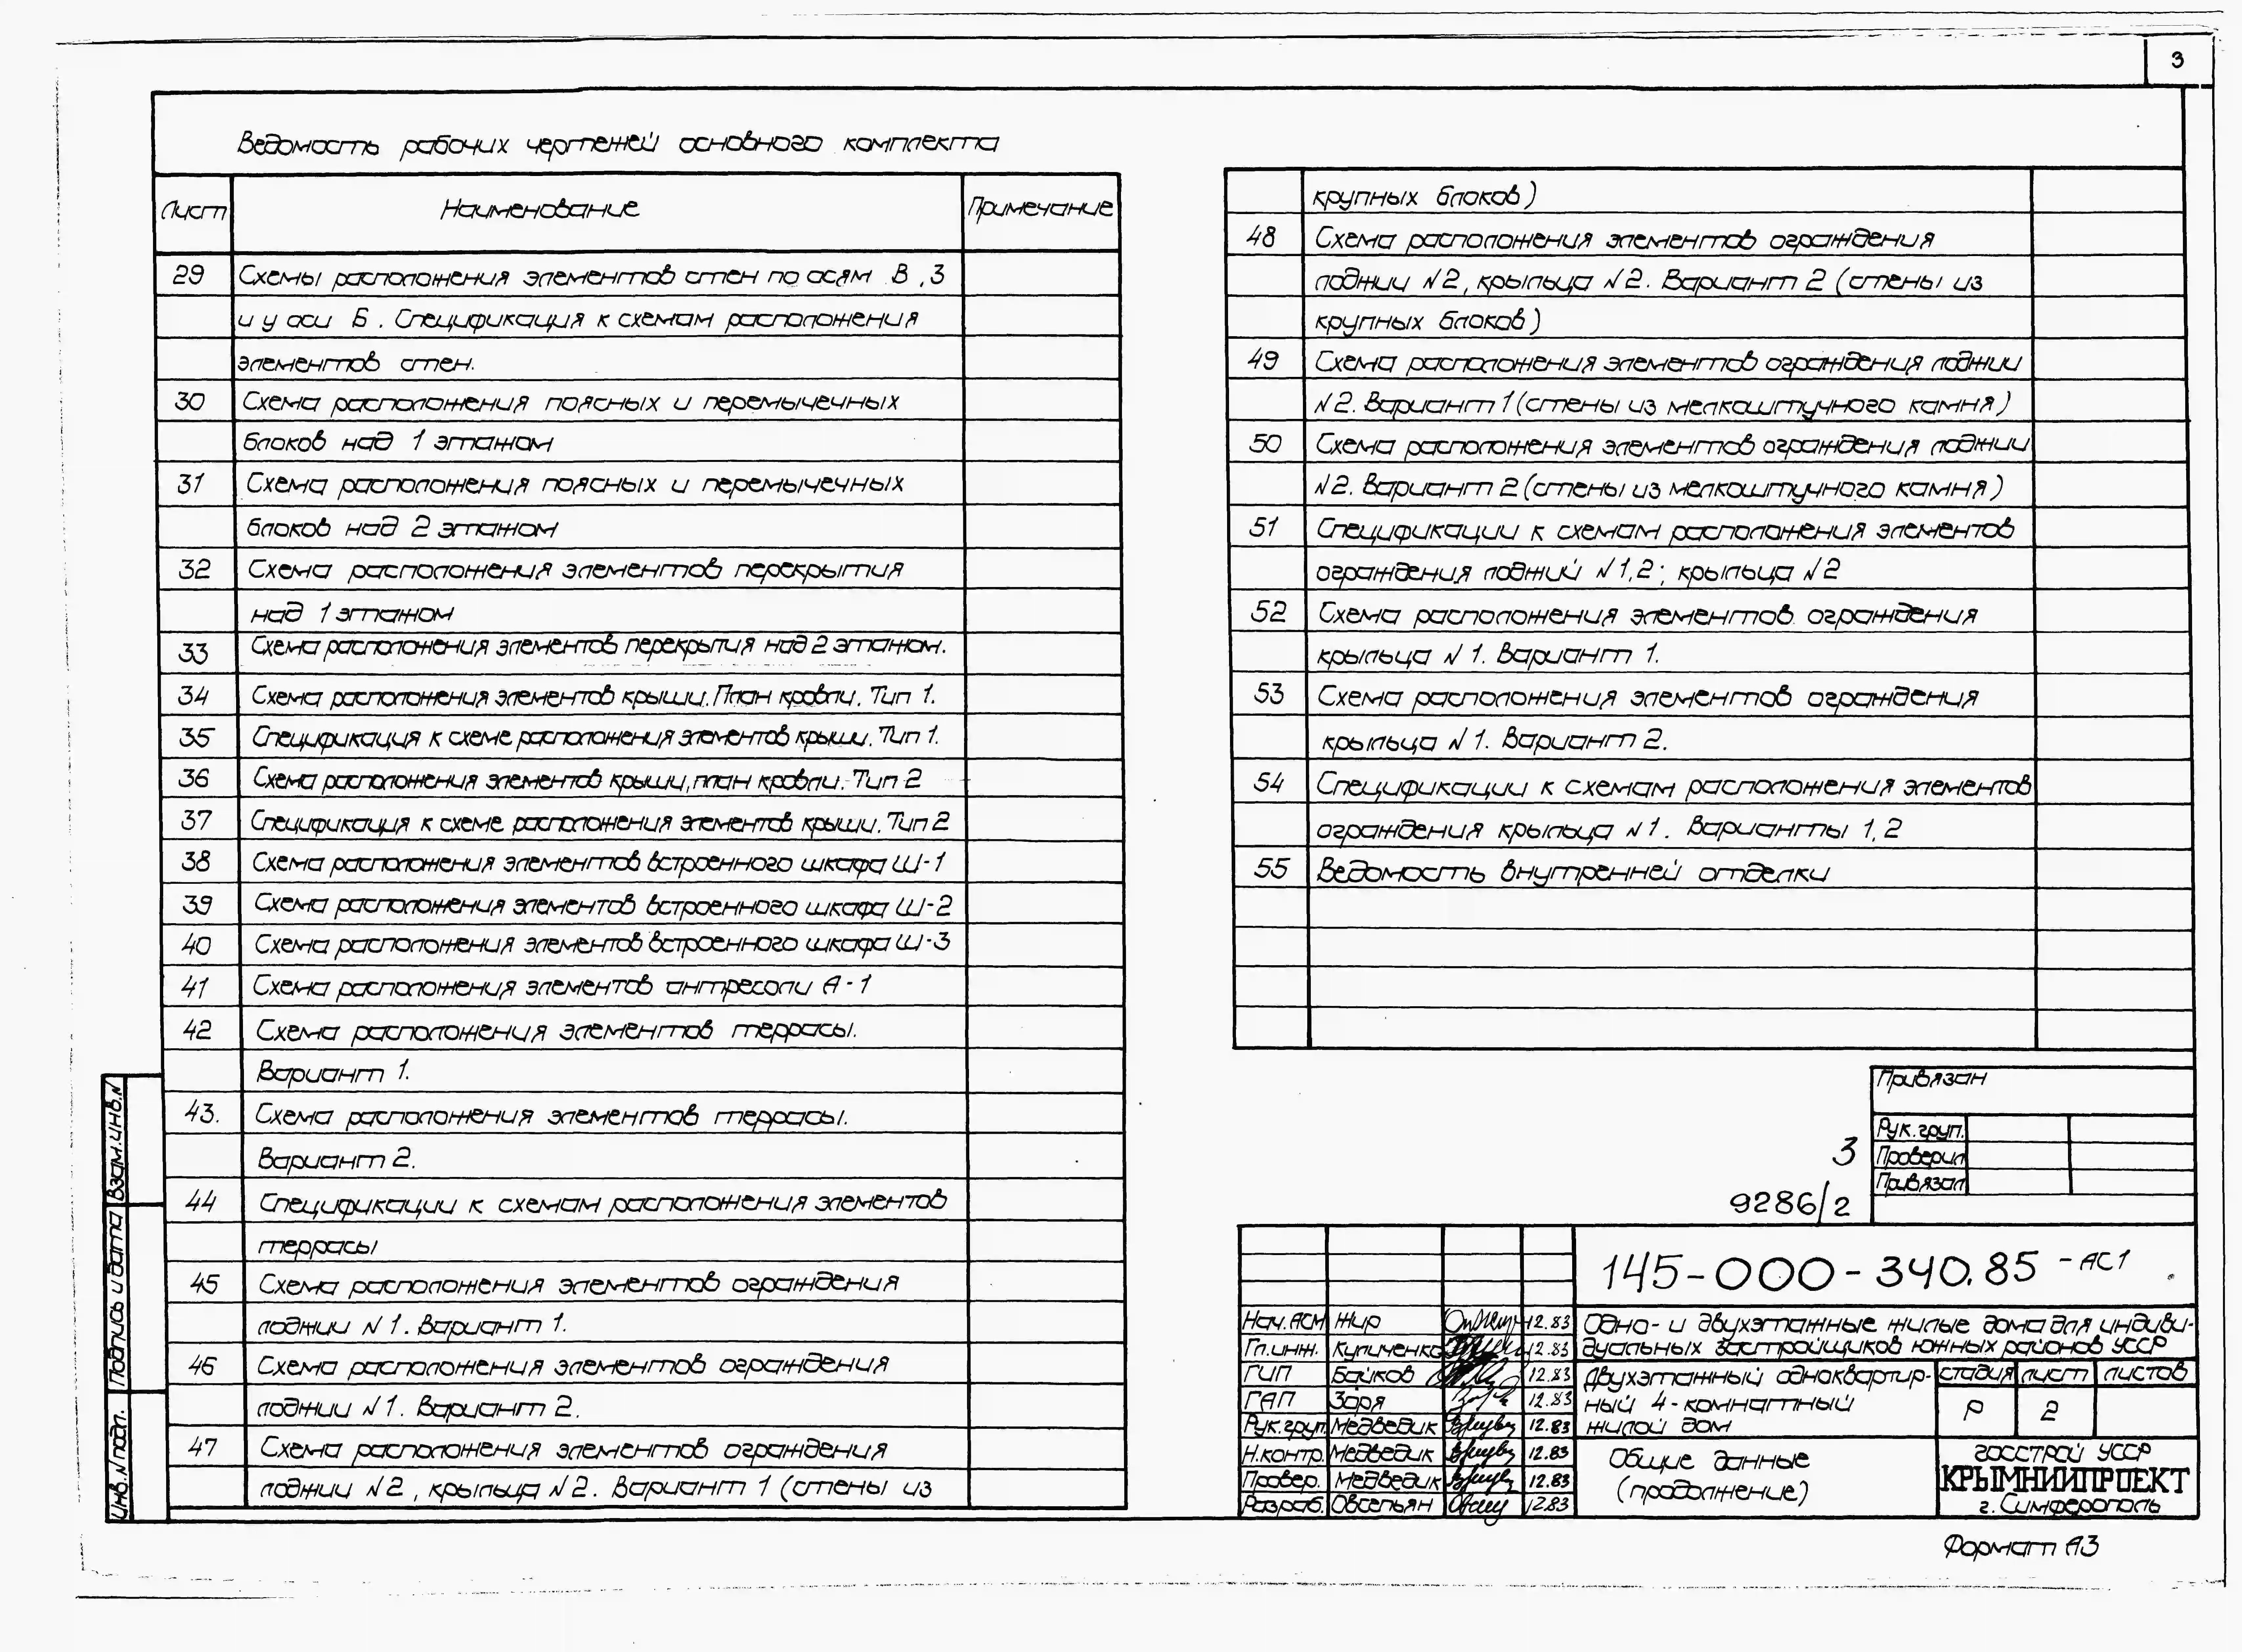 3
Ведомость рабочих чертежей основного комплекта
Лист Наименование Примечание
29 Схемы расположения элементов стен по осям В, 3
и у оси Б. Спецификация к схемам расположения
элементов стен.
30 Схема расположения поясных и перемычечных
блоков над 1 этажом
31 Схема расположения поясных и перемычечных
блоков над 2 этажом
32 Схема расположения элементов перекрытия
над 1 этажом
33 Схема расположения элементов перекрытия над 2 этажом.
34 Схема расположения элементов крыши. План кровли. Тип 1.
35 Спецификация к схеме расположения элементов крыши. Тип 1.
36 Схема расположения элементов крыши, план кровли. Тип 2
37 Спецификация к схеме расположения элементов крыши. Тип 2
38 Схема расположения элементов встроенного шкафа Ш-1
39 Схема расположения элементов встроенного шкафа Ш-2
40 Схема расположения элементов встроенного шкафа Ш-3
41 Схема расположения элементов антресоли А-1
42 Схема расположения элементов террасы.
Вариант 1.
43. Схема расположения элементов террасы.
Вариант 2.
44 Спецификации к схемам расположения элементов
террасы
45 Схема расположения элементов ограждения
лоджии N1. Вариант 1.
46 Схема расположения элементов ограждения
лоджии N1. Вариант 2.
47 Схема расположения элементов ограждения
лоджии N2, крыльца N2. Вариант 1 (стены из
крупных блоков)
48 Схема расположения элементов ограждения
лоджии N2, крыльца N2. Вариант 2 (стены из
крупных блоков)
49 Схема расположения элементов ограждения лоджии
N2. Вариант 1 (стены из мелкоштучного камня)
50 Схема расположения элементов ограждения лоджии
N2. Вариант 2 (стены из мелкоштучного камня)
51 Спецификации к схемам расположения элементов
ограждения лоджий N1,2; крыльца N2
52 Схема расположения элементов ограждения
крыльца N1. Вариант 1.
53 Схема расположения элементов ограждения
крыльца N1. Вариант 2.
54 Спецификации к схемам расположения элементов
ограждения крыльца N1. Варианты 1,2
55 Ведомость внутренней отделки
Привязан
Рук.груп.
Проверил
Привязал
3
9286/2
145-000-340.85 -АС1
Нач.АСМ Жир 12.83
Гл.инж. Куличенко 12.83
ГИП Байков 12.83
ГАП Заря 12.83
Рук.груп. Медведик 12.83
Н.контр. Медведик 12.83
Провер. Медведик 12.83
Разраб. Овсепьян 12.83
Одно- и двухэтажные жилые дома для индиви-
дуальных застройщиков южных районов УССР
Двухэтажный одноквартир-
ный 4-комнатный
жилой дом
стадия лист листов
Р 2
Общие данные
(продолжение)
ГОССТРОЙ УССР
КРЫМНИИПРОЕКТ
г. Симферополь
Формат А3
Взам.инв.N
Подпись и дата
Инв.N подл.